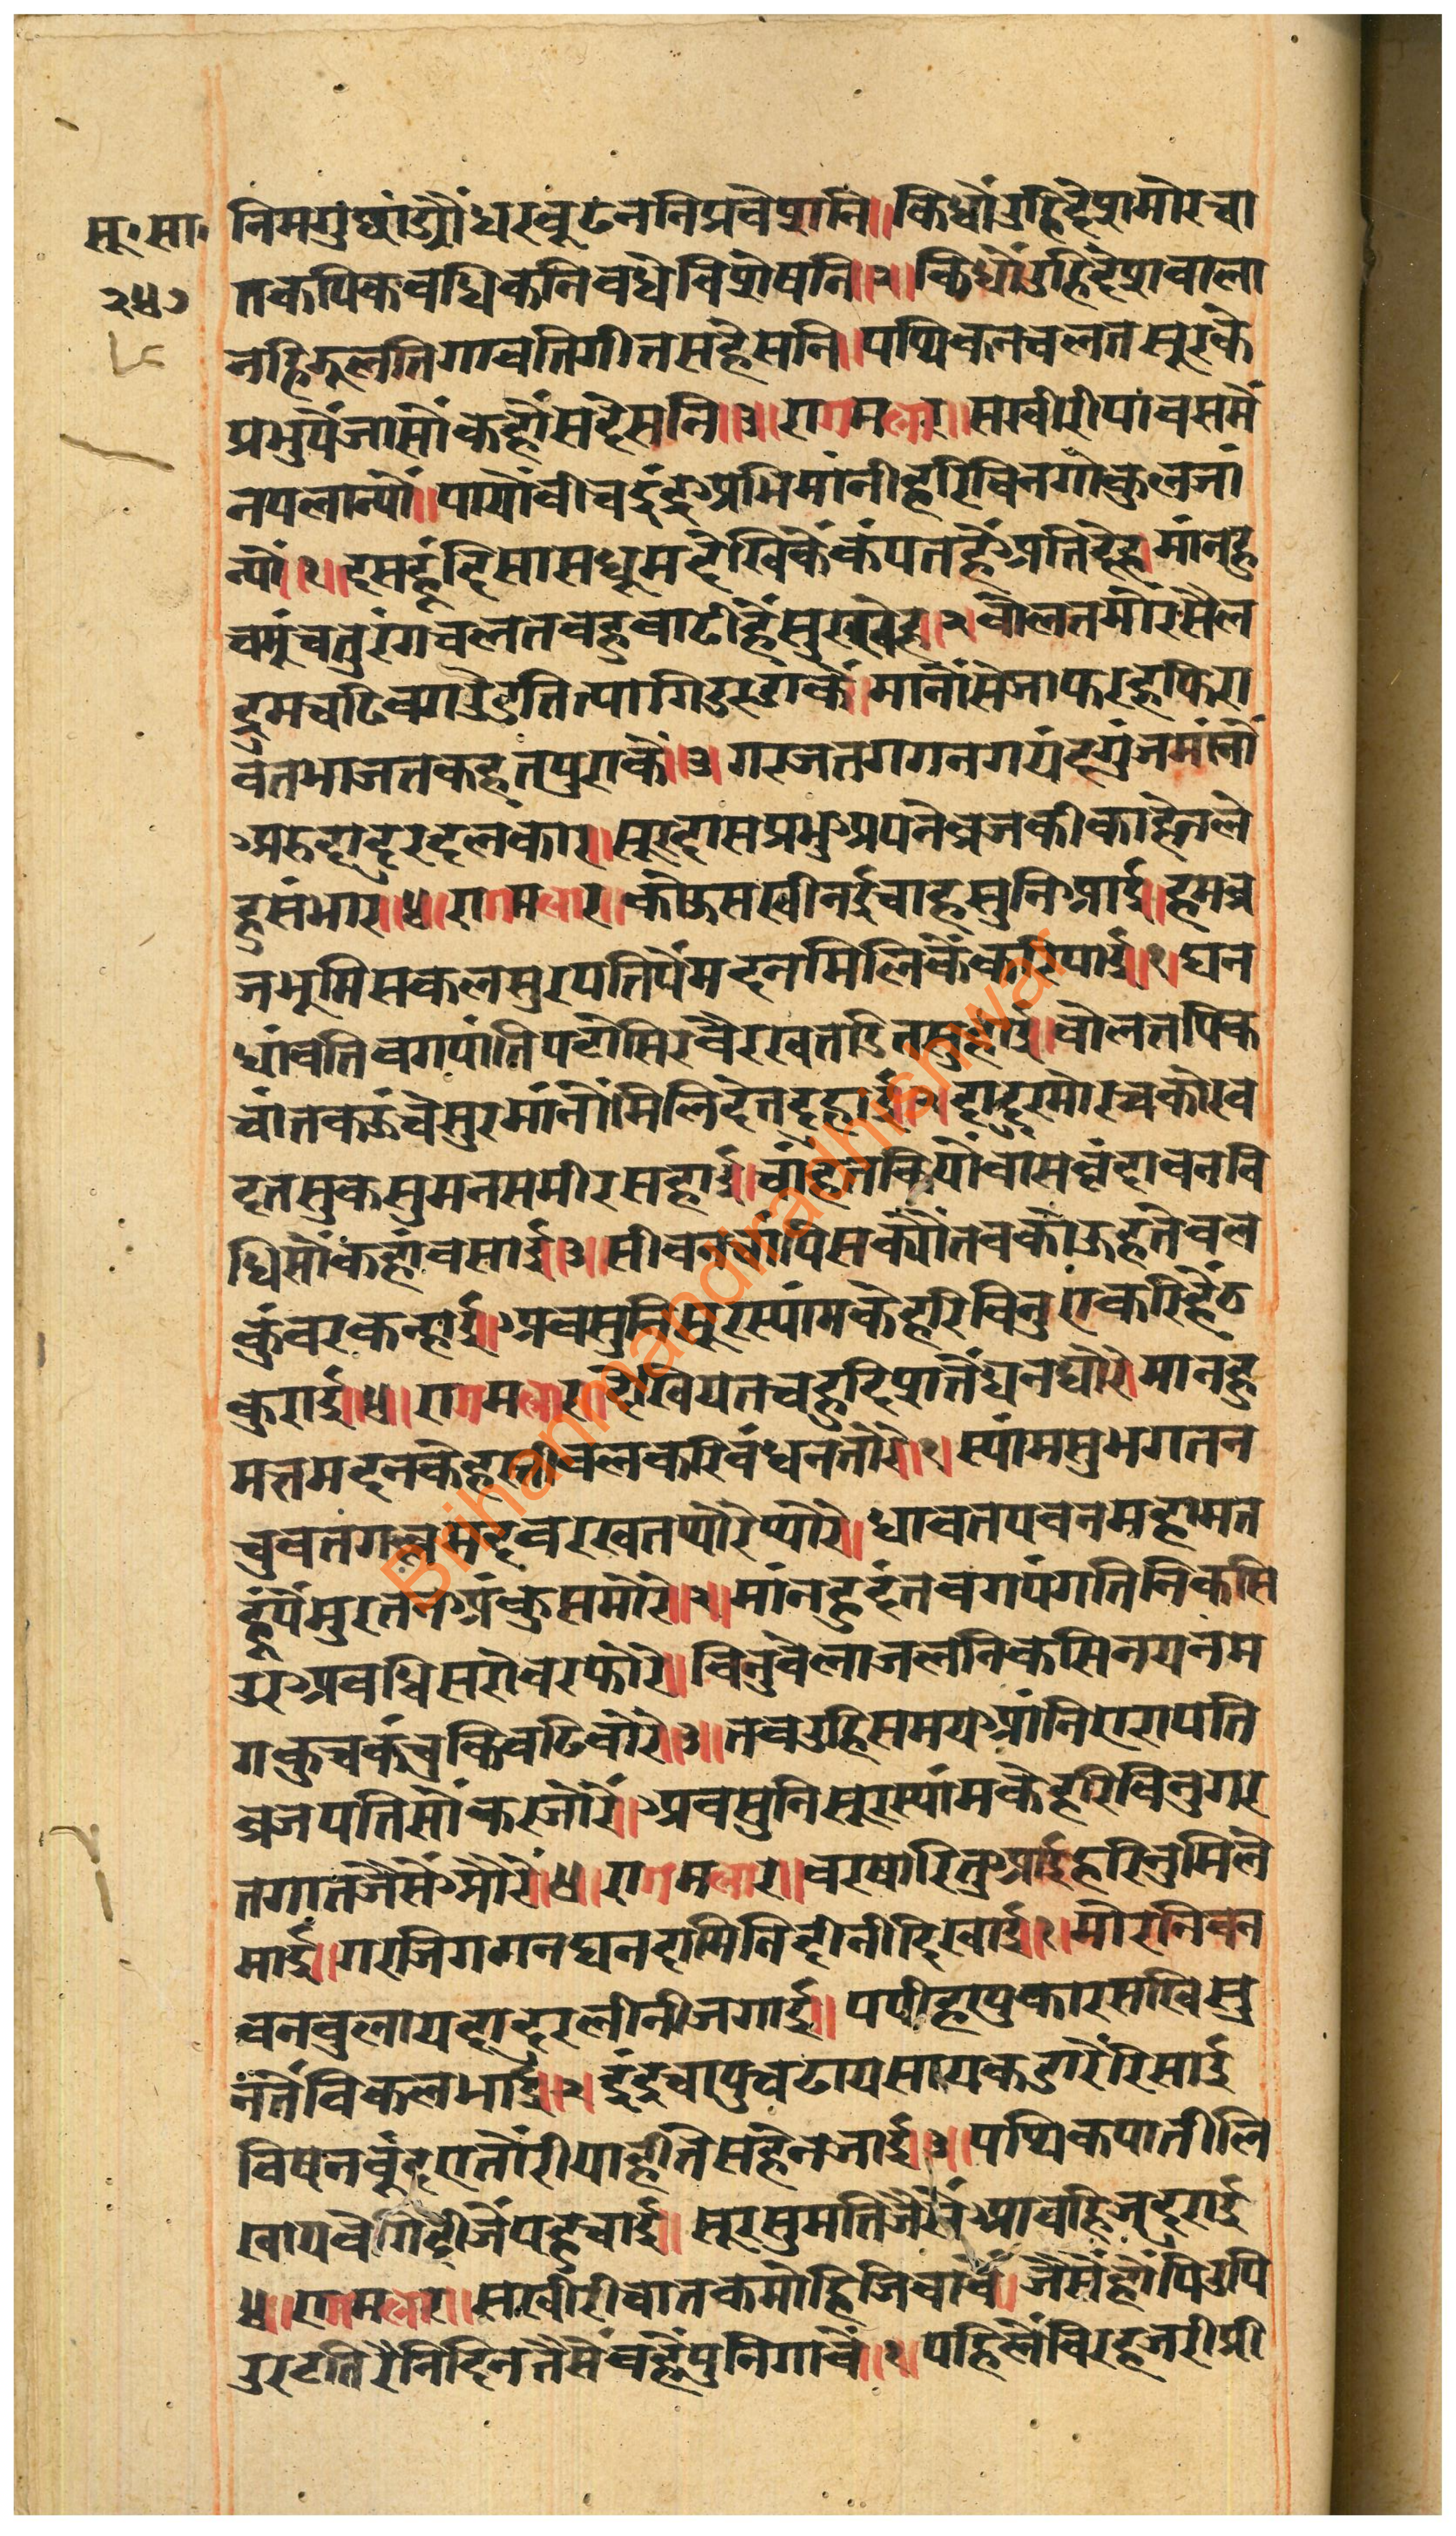 सू॰सा॰
२५७
निमगुछांड्यौधरबूटननिप्रवेशनि॥किधौंउहिदेशमोरचा
तकपिकवधिकनिवधेविशेषनि॥२॥किधौंउहिदेशवाला
नहिझुलतिगावतिगीतसहेसनि॥पथिकनचलतसूरके
प्रभुपैंजासौंकहौंसंदेसनि॥३॥रागमलार॥सखीरीपावससैं
नपलान्यौं॥पायौबीचइंद्रअभिमांनीहरिविनगोकुलजां
न्यौं॥१॥दसहूंदिसासधूमदेखिकैंकंपतहैंअतिदेह॥मांनहु
चमूंचतुरंगचलतबहुबाढीहैंसुरखेह॥२॥बोलतमोरसैल
द्रुमचढिबगउडतित्यागिउरडारकैं॥मांनौंसेजाफरहफिरा
वतभाजतकहतपुराकैं॥३॥गरजतगगनगयंदगुंजमांनौं
अरुदादुरदलकार॥सूरदासप्रभुअपनेब्रजकीकाहेनले
हुसंभार॥४॥रागमलार॥कोऊसखीनईचाहसुनिआई॥हमब्र
जभूमिसकलसुरपतिपैंमदनमिलिकैंकरिपाई॥१॥घन
धांवतिबगपांतिपटोसिरबैरखतडितसुहाई॥बोलतपिक
चांतकऊंचेसुरमांनौंमिलिदेतदुहाई॥२॥दादुरमोरचकोरव
दतसुकसुमनसमीरसहाई॥चांहतकियौवाससवृंदावनवि
धिसौंकहांवसाई॥३॥सीवनचांपिसक्यौतबकोऊहतेबल
कुंवरकन्हाई॥अबसुनिसूरस्यांमकेहरिबिनुएकरिहैंठ
कुराई॥४॥रागमलार॥देखियतचहुंदिशतैंघनघोरे॥मानहु
मत्तमदनकेहाथीबलकरिबंधनतोरे॥१॥स्यांमसुभगतन
चुवतगल्लमदबरखतथोरेथोरे॥धावतपवनमहामत
हूंपैंमुरतनअंकुसमोरे॥२॥मांनहुदंतबगपंगतिनिकसि
उरअवधिसरोवरफोरे॥बिनुवेलाजलनिकसिनयनम
गकुचकंचुकिबढिबोरे॥३॥तबउहिसमयआंनिऐरापति
ब्रजपतिसौंकरजोरैं॥अबसुनिसूरस्यांमकेहरिबिनुगर
तगातजैसेंओरें॥४॥रागमलार॥बरषारितुआईहरिनुमिले
माई॥गरजिगगनघनदामिनिदीनीदिखाई॥१॥मोरनिबन
बनबुलायदादुरलीनीजगाई॥पपीहापुकारसखिसु
नंतैंविकलभाई॥२॥इंद्रचापुचढायसायकडारैंरिसाई
विषनबूंदएतोंरीयाहीतेंसहैनजाई॥३॥पथिकपातीलि
खायबेगिदीजैपहुचाई॥सूरसुमतिजैसेंआवहिजदुराई
४॥रागमलार॥सखीरीचातकमोहिजिवावैं॥जैसेंहौंपिउपि
उरटतिरैनिदिनतैसैंवहैंपुनिगावैं॥१॥पहिलेंबिरहजरीप्री